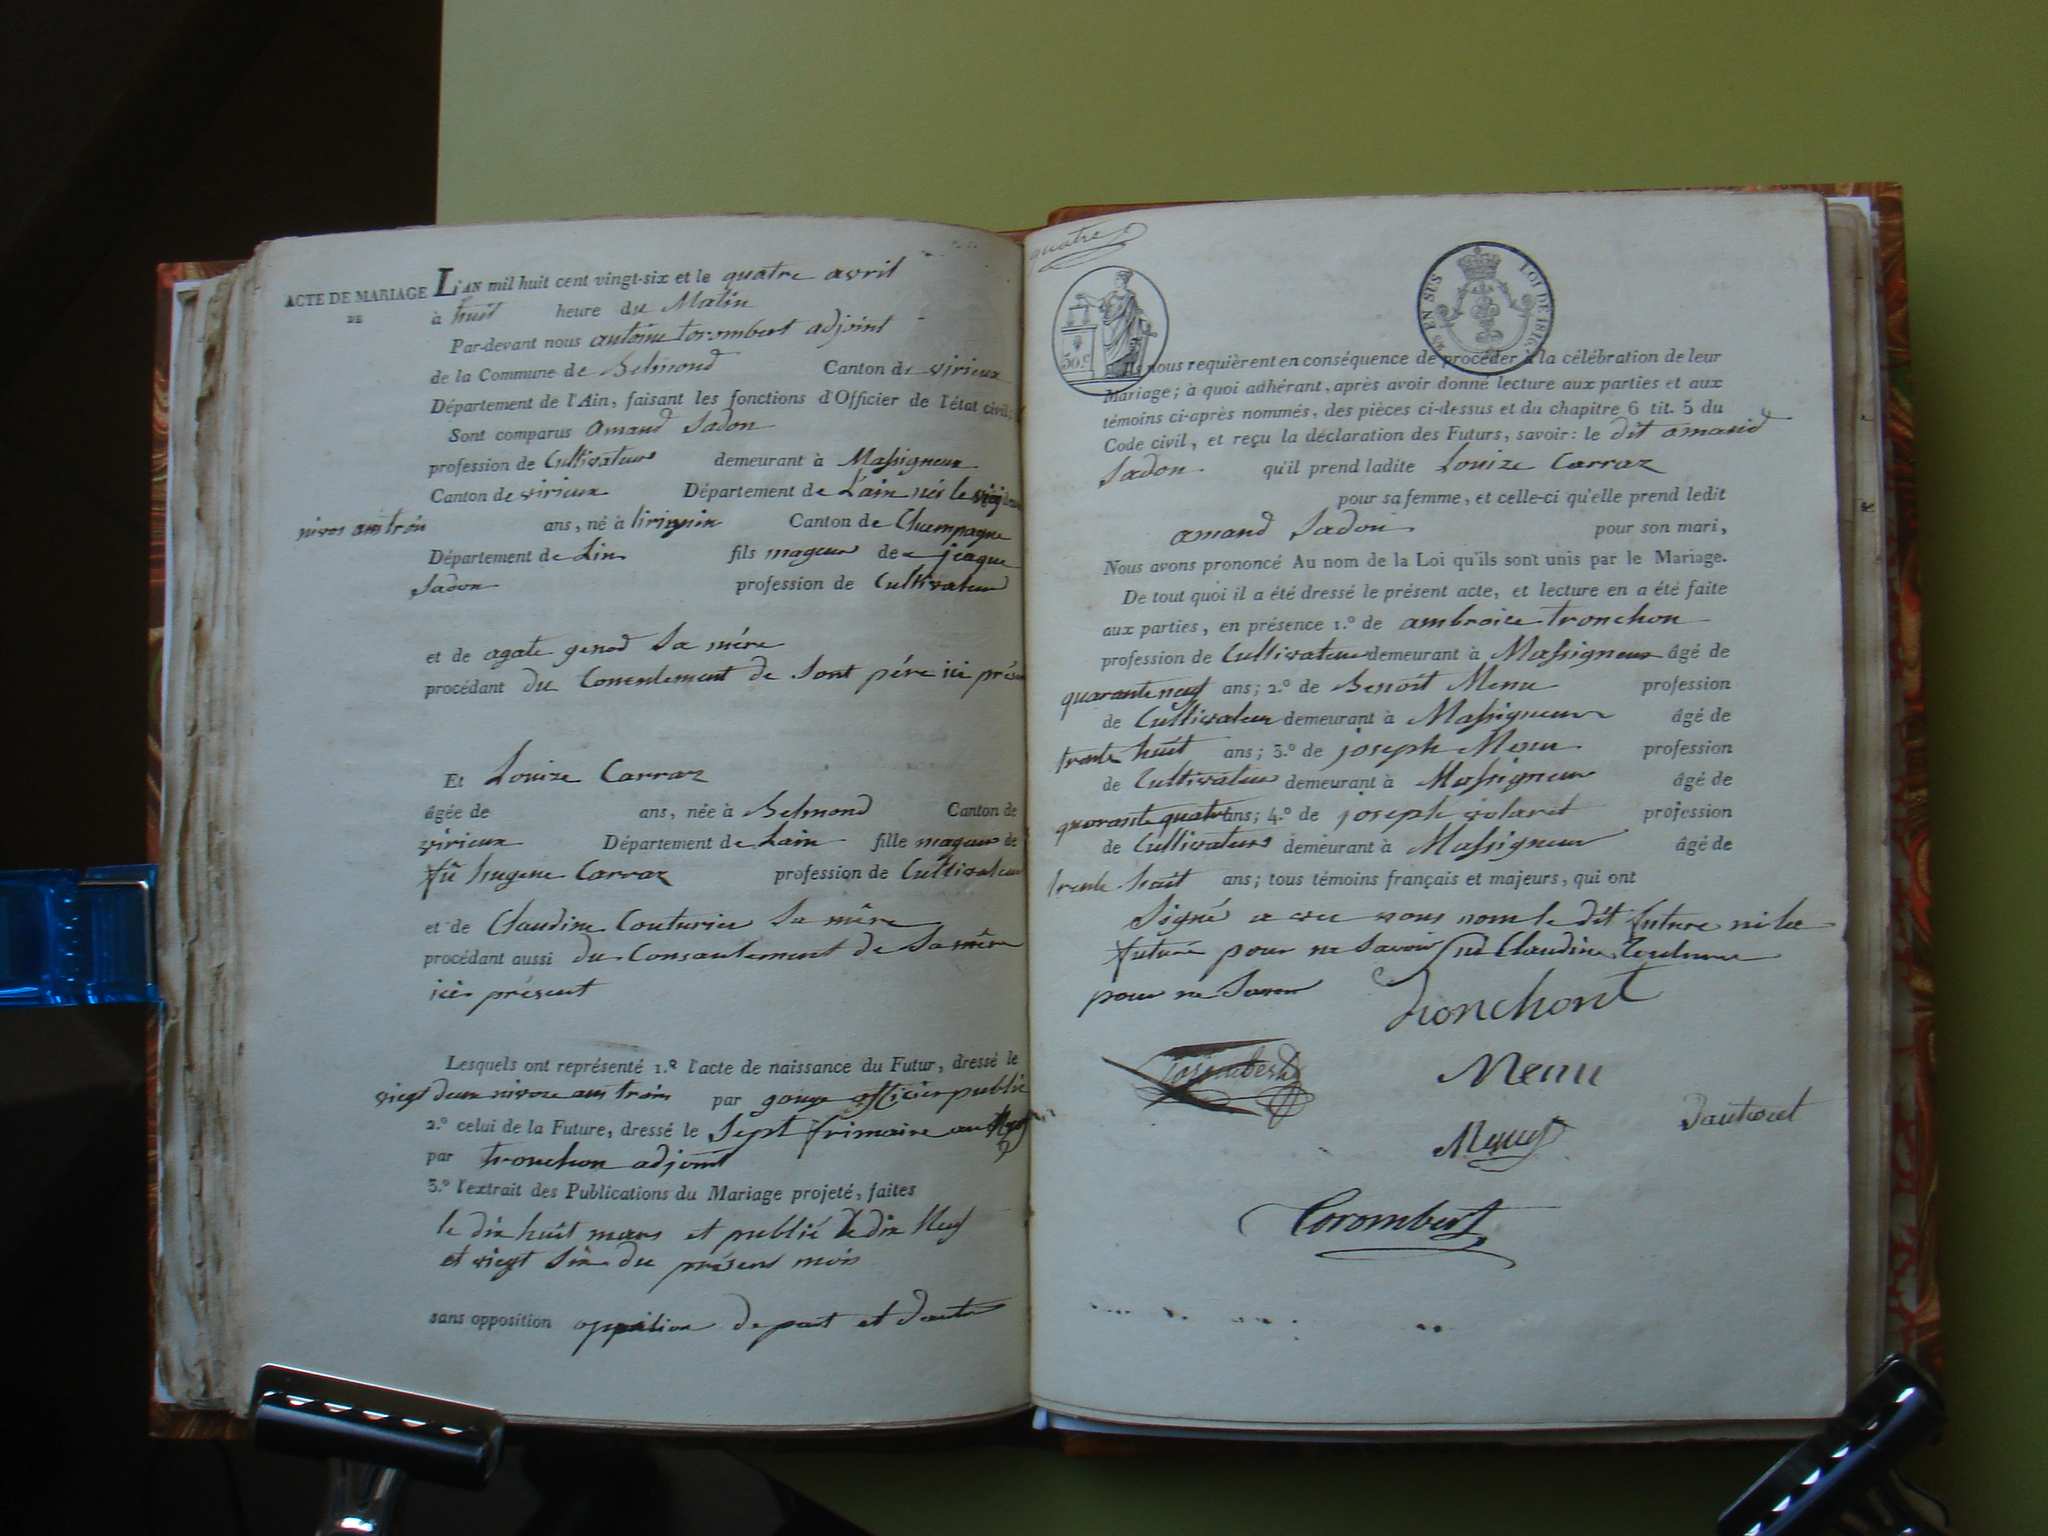 ACTE DE MARIAGE
DE
L'AN mil huit cent vingt-six et le quatre avril
à huit heure du Matin
Par-devant nous antoine torombert adjoint
de la Commune de Belmond Canton de virieux
Département de l'Ain, faisant les fonctions d'Officier de l'état civil;
Sont comparus amand Sadon
profession de Cultivateur demeurant à Massigneux
Canton de virieux Département de L'ain nés le
nivos am trois ans, né à Canton de Champagne
Département de Lin fils mageur de jcaque
Sadon profession de Cultivateur
et de agate genod Sa mére
procédant du Consentement de Sont pére ici présen
Et Louize Carraz
âgée de ans, née à Belmond Canton de
virieux Département de Lain fille mageur de
fû hugene Carraz profession de Cultivateur
et de Claudine Couturier Sa mêre
procédant aussi du Consantement de Samêre
ici présent
Lesquels ont représenté 1.º l'acte de naissance du Futur, dressé le
vingt deux nivose am trois par gouge officier public
2.º celui de la Future, dressé le Sept frimaire an
par tronchon adjoint
3.º l'extrait des Publications du Mariage projeté, faites
le dix huit mars et publié le dix Neuf
et vingt Six du présent mois
sans opposition oppisition de part et dautre
quatre
50.c
EN SUS
LOI DE 1816.
Ils nous requièrent en conséquence de procéder à la célébration de leur
Mariage; à quoi adhérant, après avoir donné lecture aux parties et aux
témoins ci-après nommés, des pièces ci-dessus et du chapitre 6 tit. 5 du
Code civil, et reçu la déclaration des Futurs, savoir: le dit amand
Sadon qu'il prend ladite Louize Carraz
pour sa femme, et celle-ci qu'elle prend ledit
amand Sadon pour son mari,
Nous avons prononcé Au nom de la Loi qu'ils sont unis par le Mariage.
De tout quoi il a été dressé le présent acte, et lecture en a été faite
aux parties, en présence 1.º de ambroise tronchon
profession de Cultivateur demeurant à Massigneux âgé de
quarante neuf ans; 2.º de Benoit Menu profession
de Cultivateur demeurant à Massigneux âgé de
trente huit ans; 3.º de joseph Menu profession
de Cultivateur demeurant à Massigneux âgé de
quarante quatre ans; 4.º de joseph profession
de Cultivateur demeurant à Massigneux âgé de
trente huit ans; tous témoins français et majeurs, qui ont
Signé a vec nous nom le dit future ni la
future pour ne Savoir ni Claudine
pour ne Savoir
tronchont
Torombert
Menu
Menu
Dautrect
Corombert